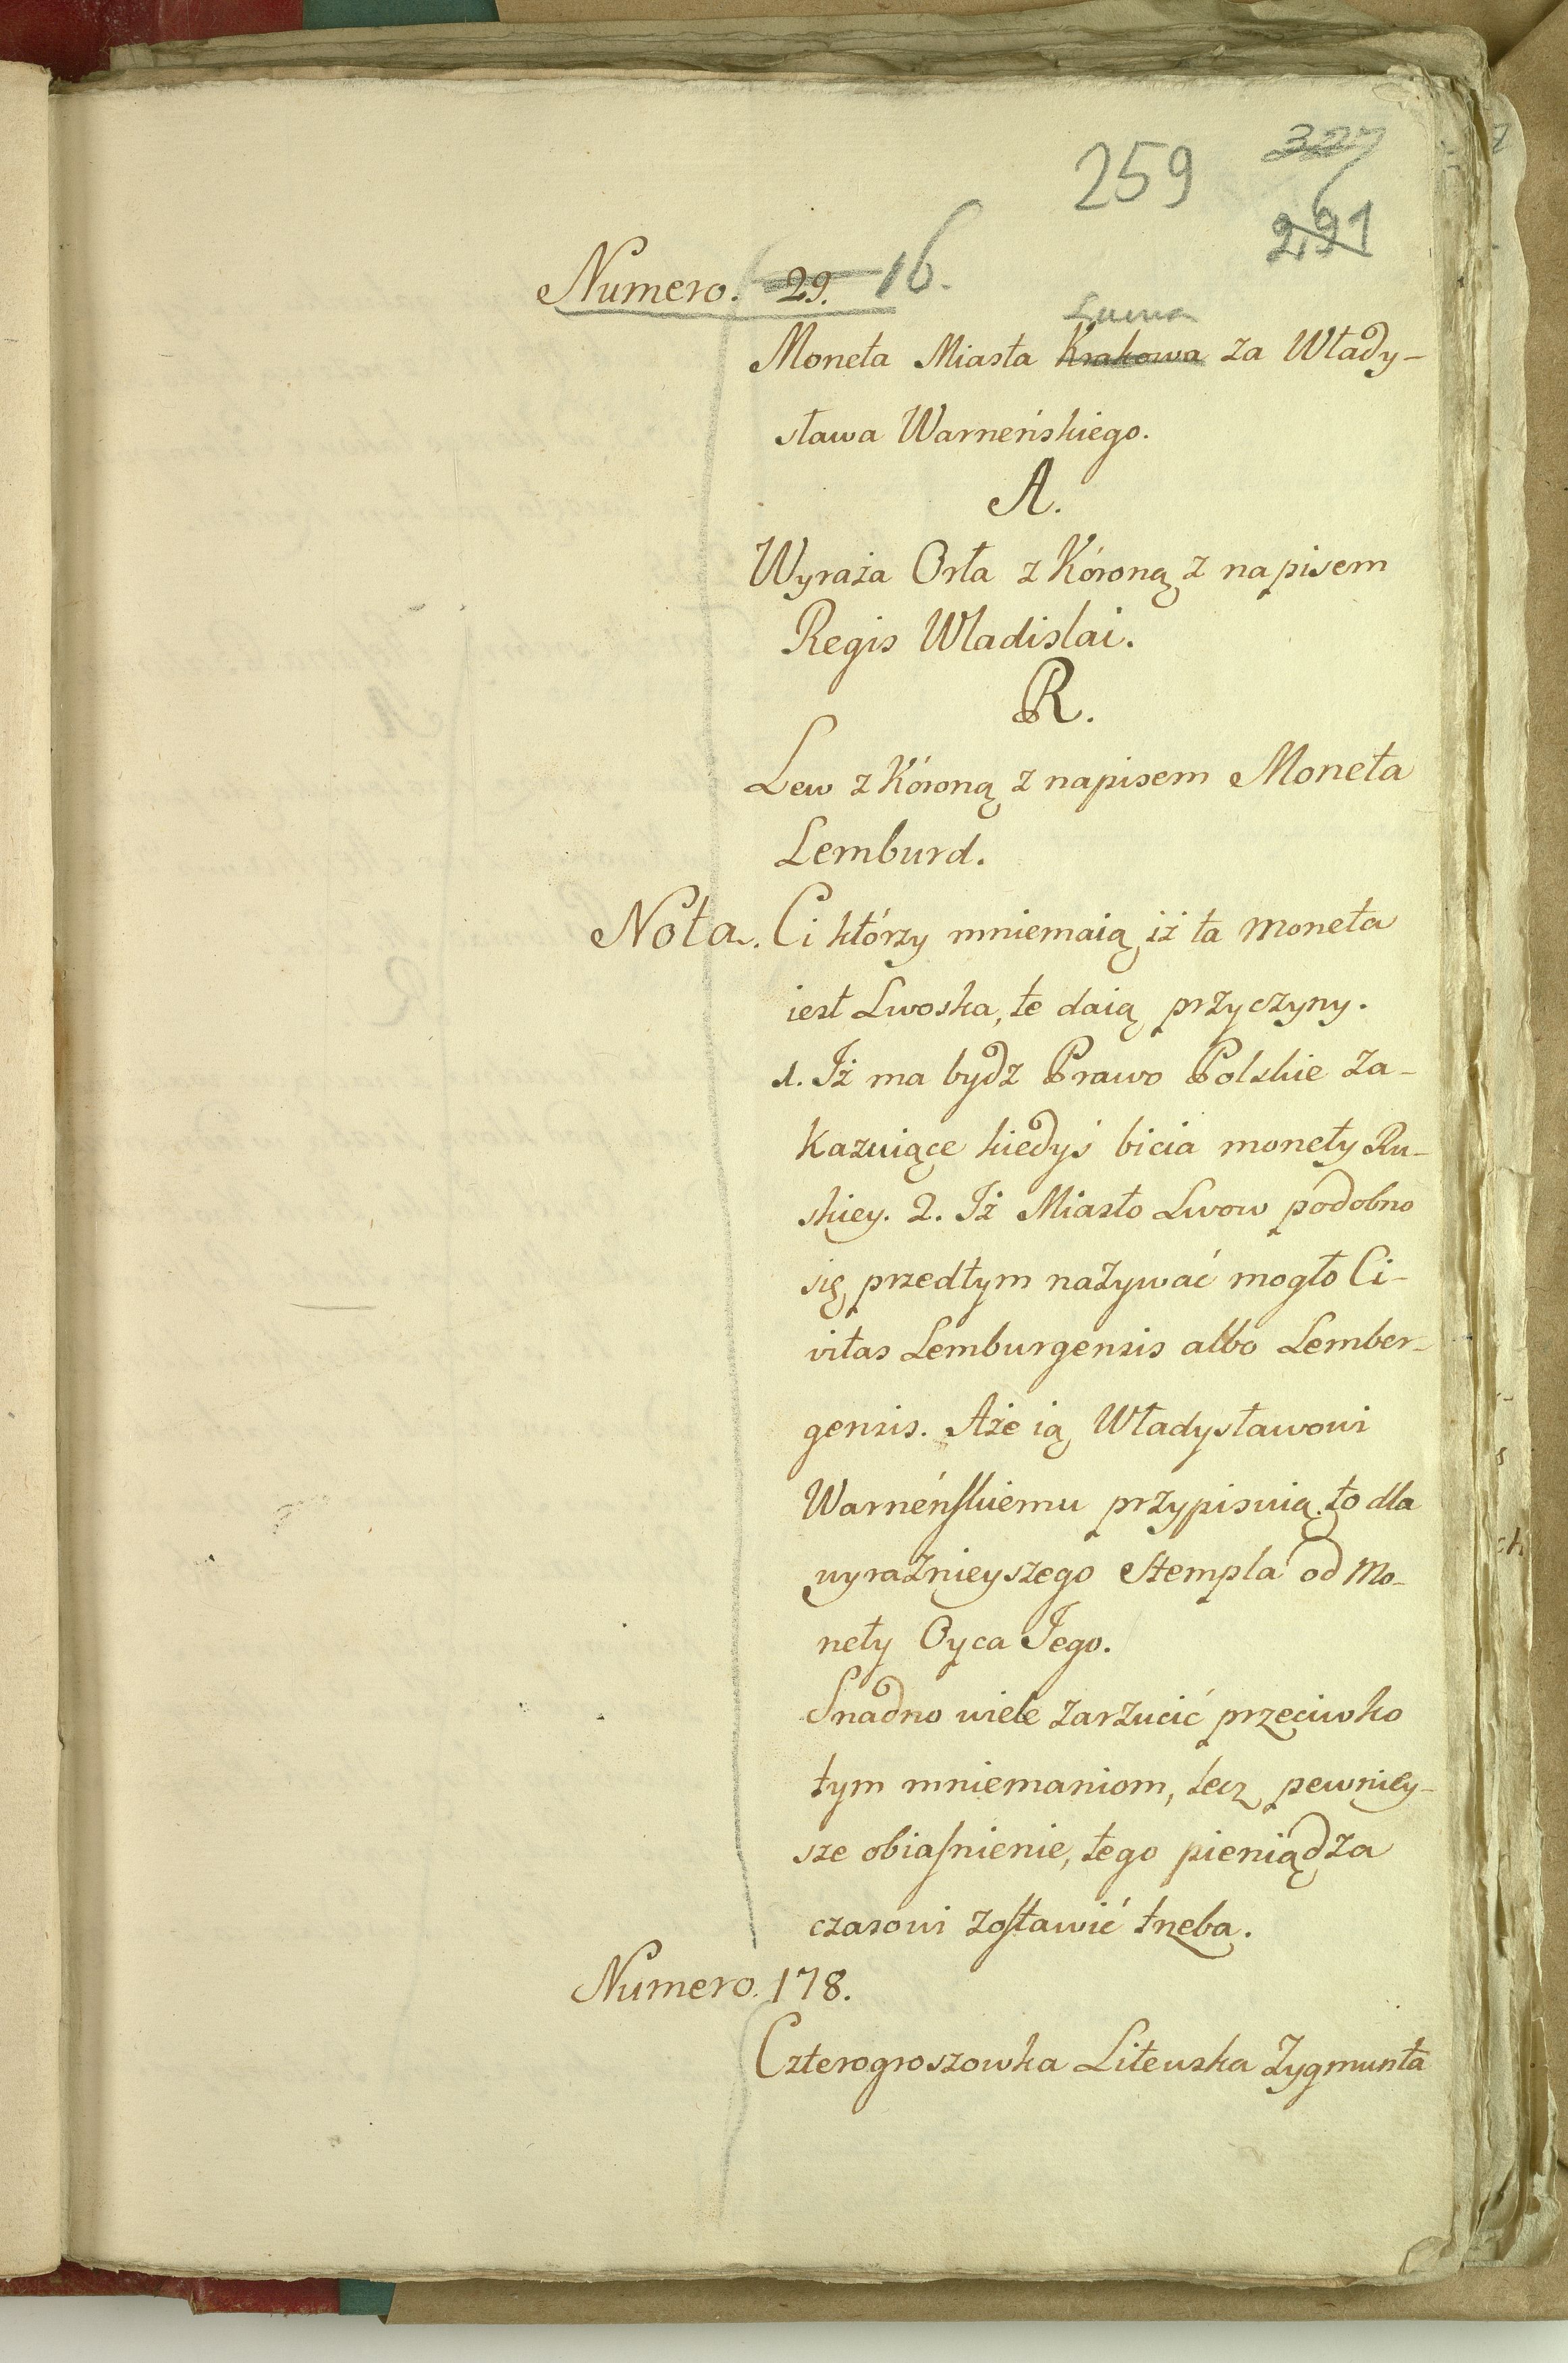 259 327
291
Numero. 29. 16.
Lwowa
Moneta Miasta Krakowa za Włady-
sława Warneńskiego.
A.
Wyraża Orła z Kóroną z napisem
Regis Wladislai.
R.
Lew z Kóroną z napisem Moneta
Lemburd.
Nota. Ci którzy mniemaią iż ta moneta
iest Lwoska, te daią przyczyny.
1. Iż ma bydz Prawo Polskie za-
kazuiące kiedyś bicia monety Ru-
skiey. 2. Iż Miasto Lwow podobno
się przedtym nazywać mogło Ci-
vitas Lemburgensis albo Lember-
gensis. Aże ią Władysławowi
Warneńskiemu przypisuią to dla
wyraźnieyszego Stempla od Mo-
nety Oyca Jego.
Snadno wiele zarzucić przeciwko
tym mniemaniom, lecz pewniey-
sze obiaśnienie, tego pieniądza
czasowi zostawić trzeba.
Numero. 178.
Czterogroszowka Litewska Zygmunta